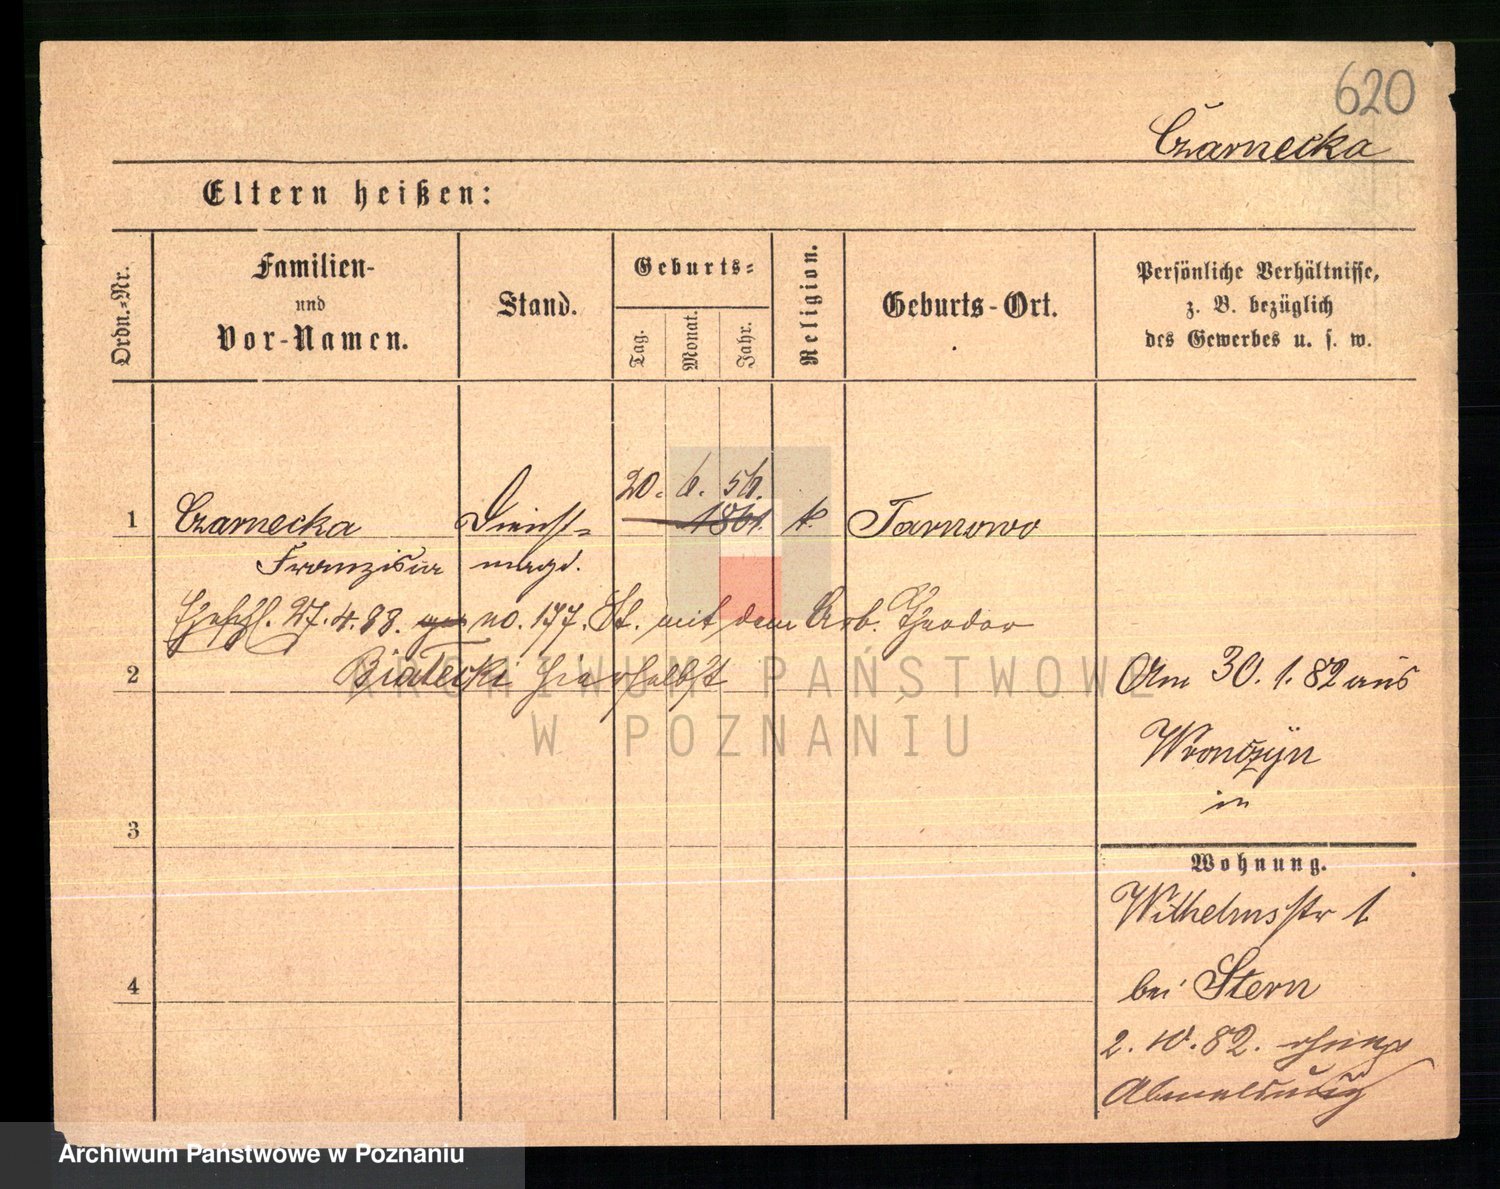 620
Czarnecka
Eltern heißen:
Ordn.-Nr.
Familien-
und
Vor-Namen.
Stand.
Geburts-
Tag.
Monat.
Jahr.
Religion.
Geburts-Ort.
Persönliche Verhältnisse,
z. B. bezüglich
des Gewerbes u. s. w.
20. 6. 56.
1 Czarnecka Dienst= 1861 k. Tarnowo
Franziska magd.
Ehschl. 27. 4. 88. no. 177. St. mit dem Arb. Theodor
Białecki hierselbst
2
Am 30. 1. 82 aus
Wronczyn
in
3
Wohnung.
Wilhelmsstr 1
bei Stern
4
2. 10. 82. ohne
Abmeldung
ARCHIWUM PAŃSTWOWE
W POZNANIU
Archiwum Państwowe w Poznaniu